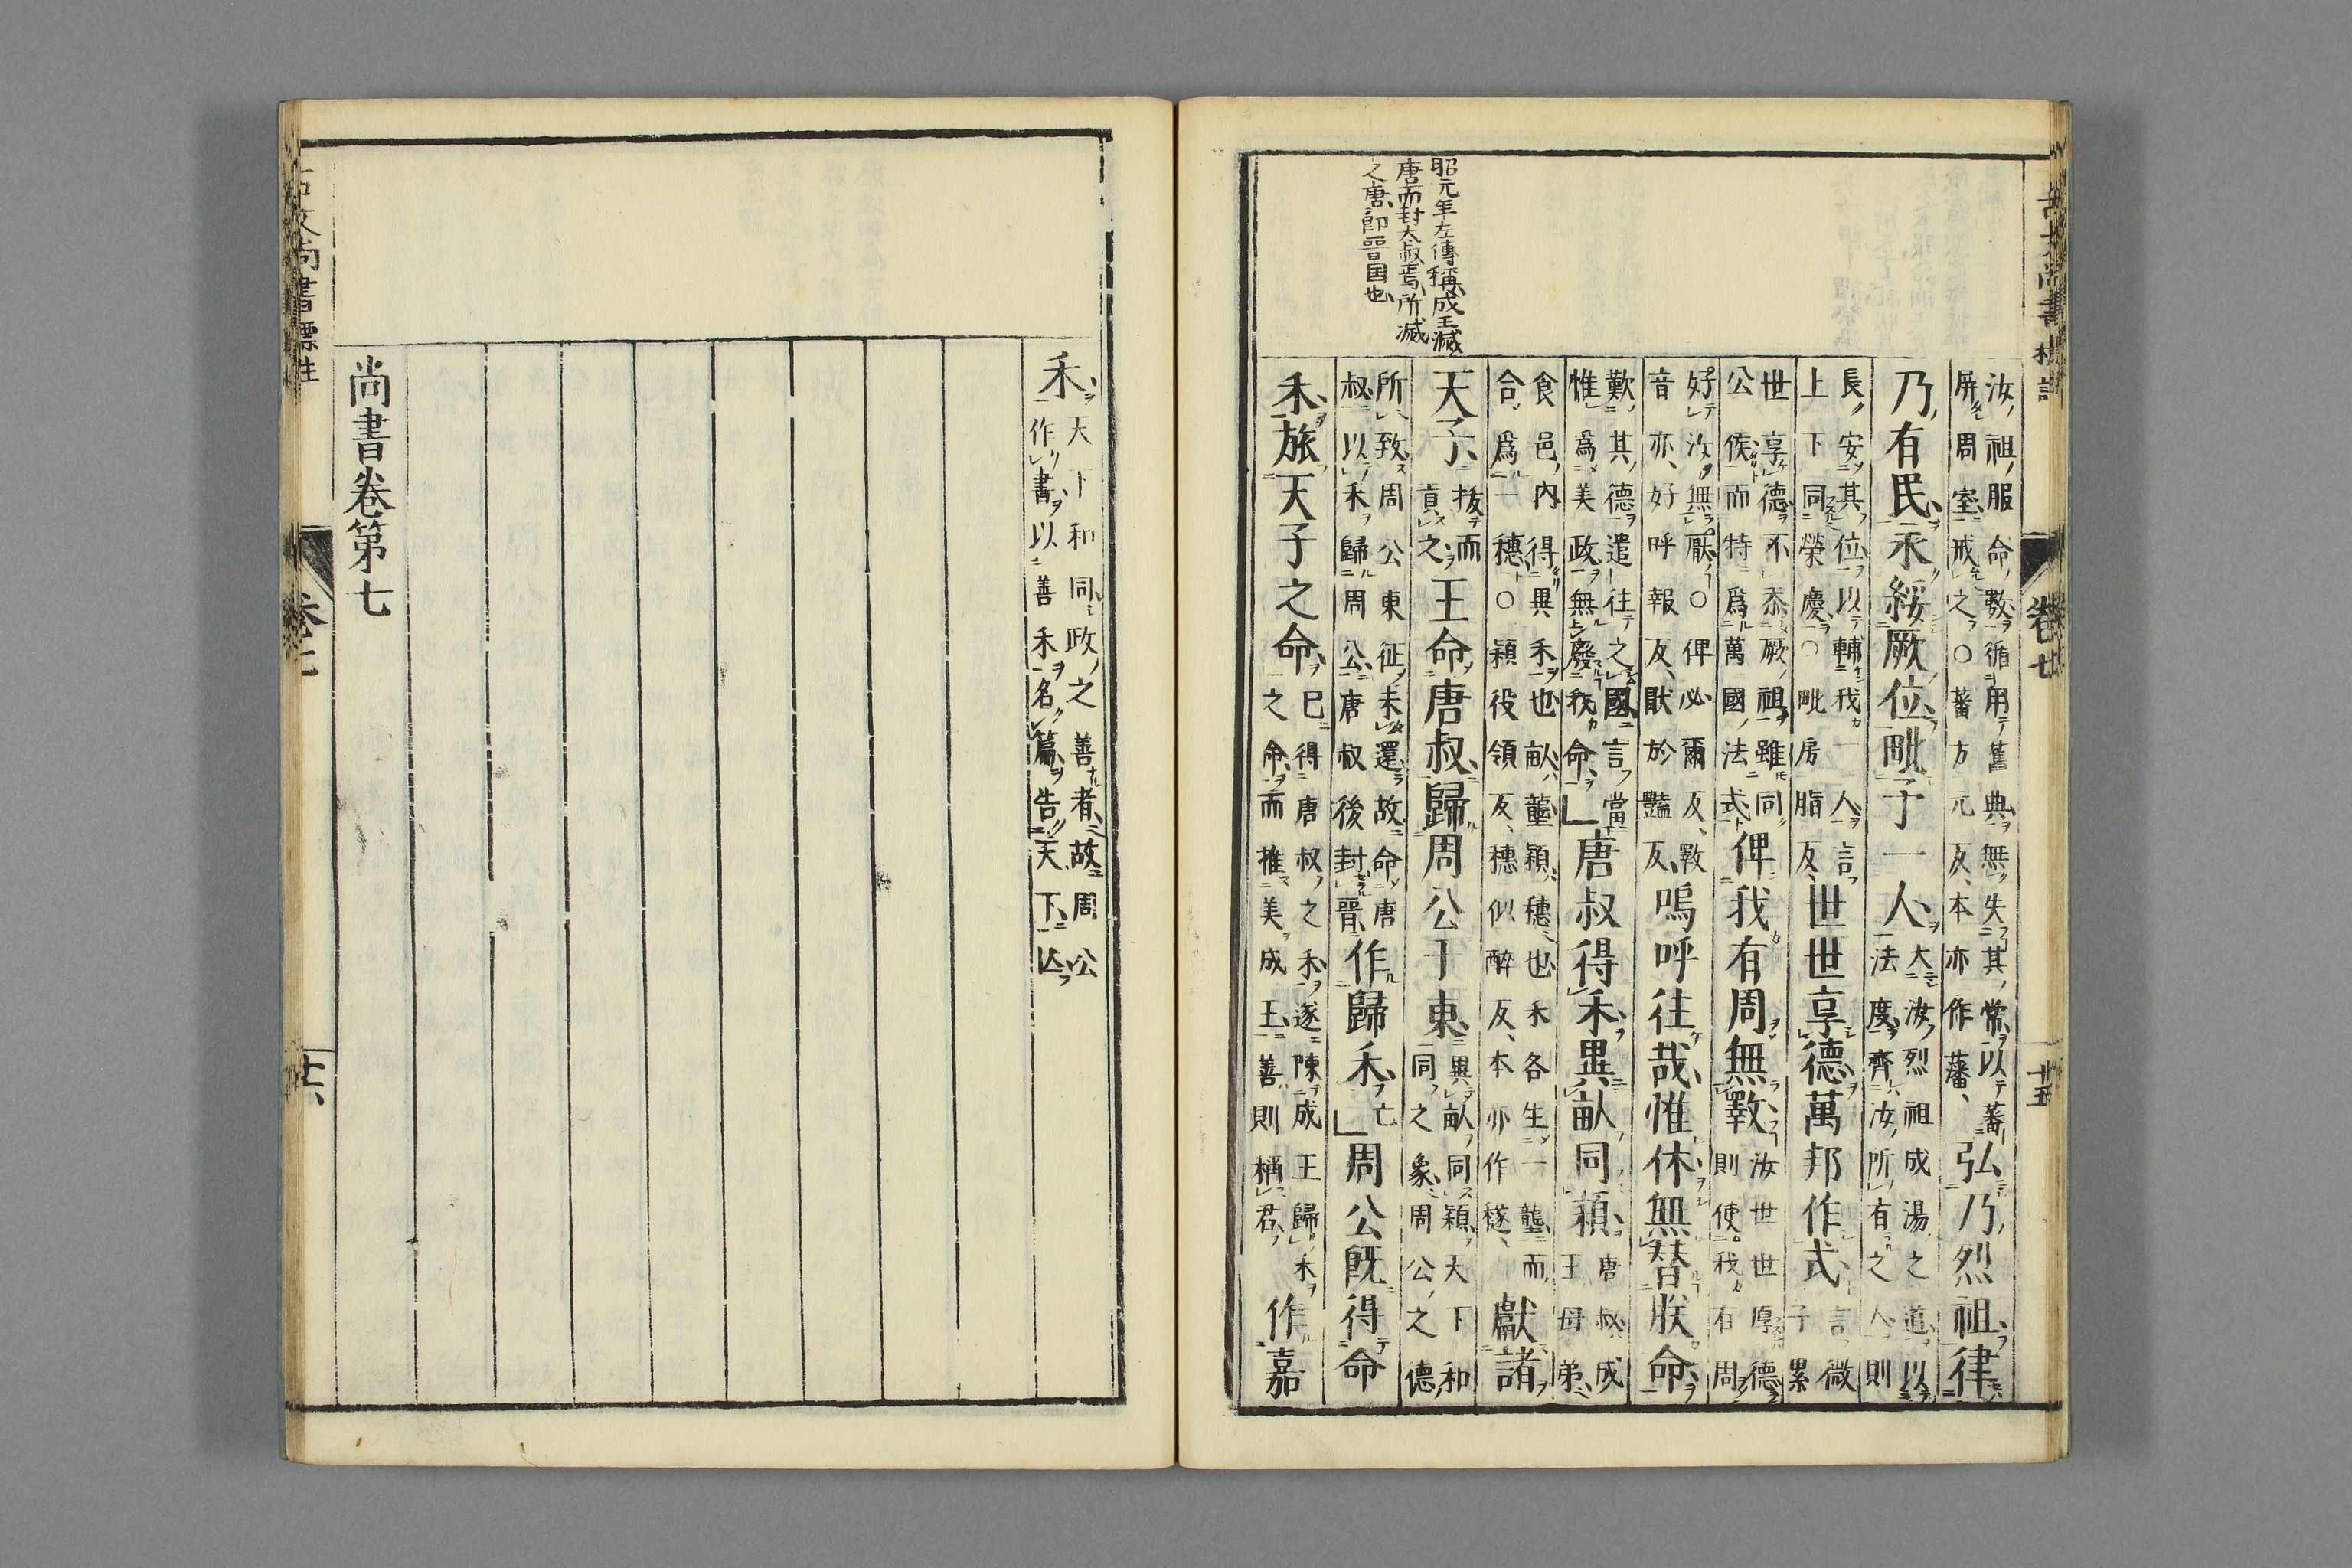 古文尚書標註
卷七
十五
昭元年左傳稱成王滅
唐而封大叔焉所滅
之唐即晋国也
汝祖服命數循用舊典無失其常以蕃
屏周室戒之○蕃方元反本亦作藩弘乃烈祖律
乃有民永綏厥位毗予一人大汝烈祖成湯之道以
法度齊汝所有之人則
長安其位以輔我一人言
上下同榮慶○毗房脂反世世享德萬邦作式言微
子累
世享德不忝厥祖雖同
公侯而特爲萬國法式俾我有周無斁汝世世厚德
則使我有周
好汝無厭○俾必爾反斁
音亦好呼報反猒於豔反嗚呼往哉惟休無替朕命
歎其德遣往之國言當
惟爲美政無廢我命唐叔得禾異畝同穎唐叔成
王母弟
食邑內得異禾也畝壟穎穗也禾各生一壟而
合爲一穗○穎役領反穗似醉反本亦作穟獻諸
天子拔而
貢之王命唐叔歸周公于東異畝同穎天下和
同之象周公之德
所致周公東征未還故命唐
叔以禾歸周公唐叔後封晋作歸禾亡周公旣得命
禾旅天子之命已得唐叔之禾遂陳成王歸禾
之命而推美成王善則稱君作嘉
禾天下和同政之善者故周公
作書以善禾名篇告天下亾
尚書卷第七
古文尚書標註
卷七
十六